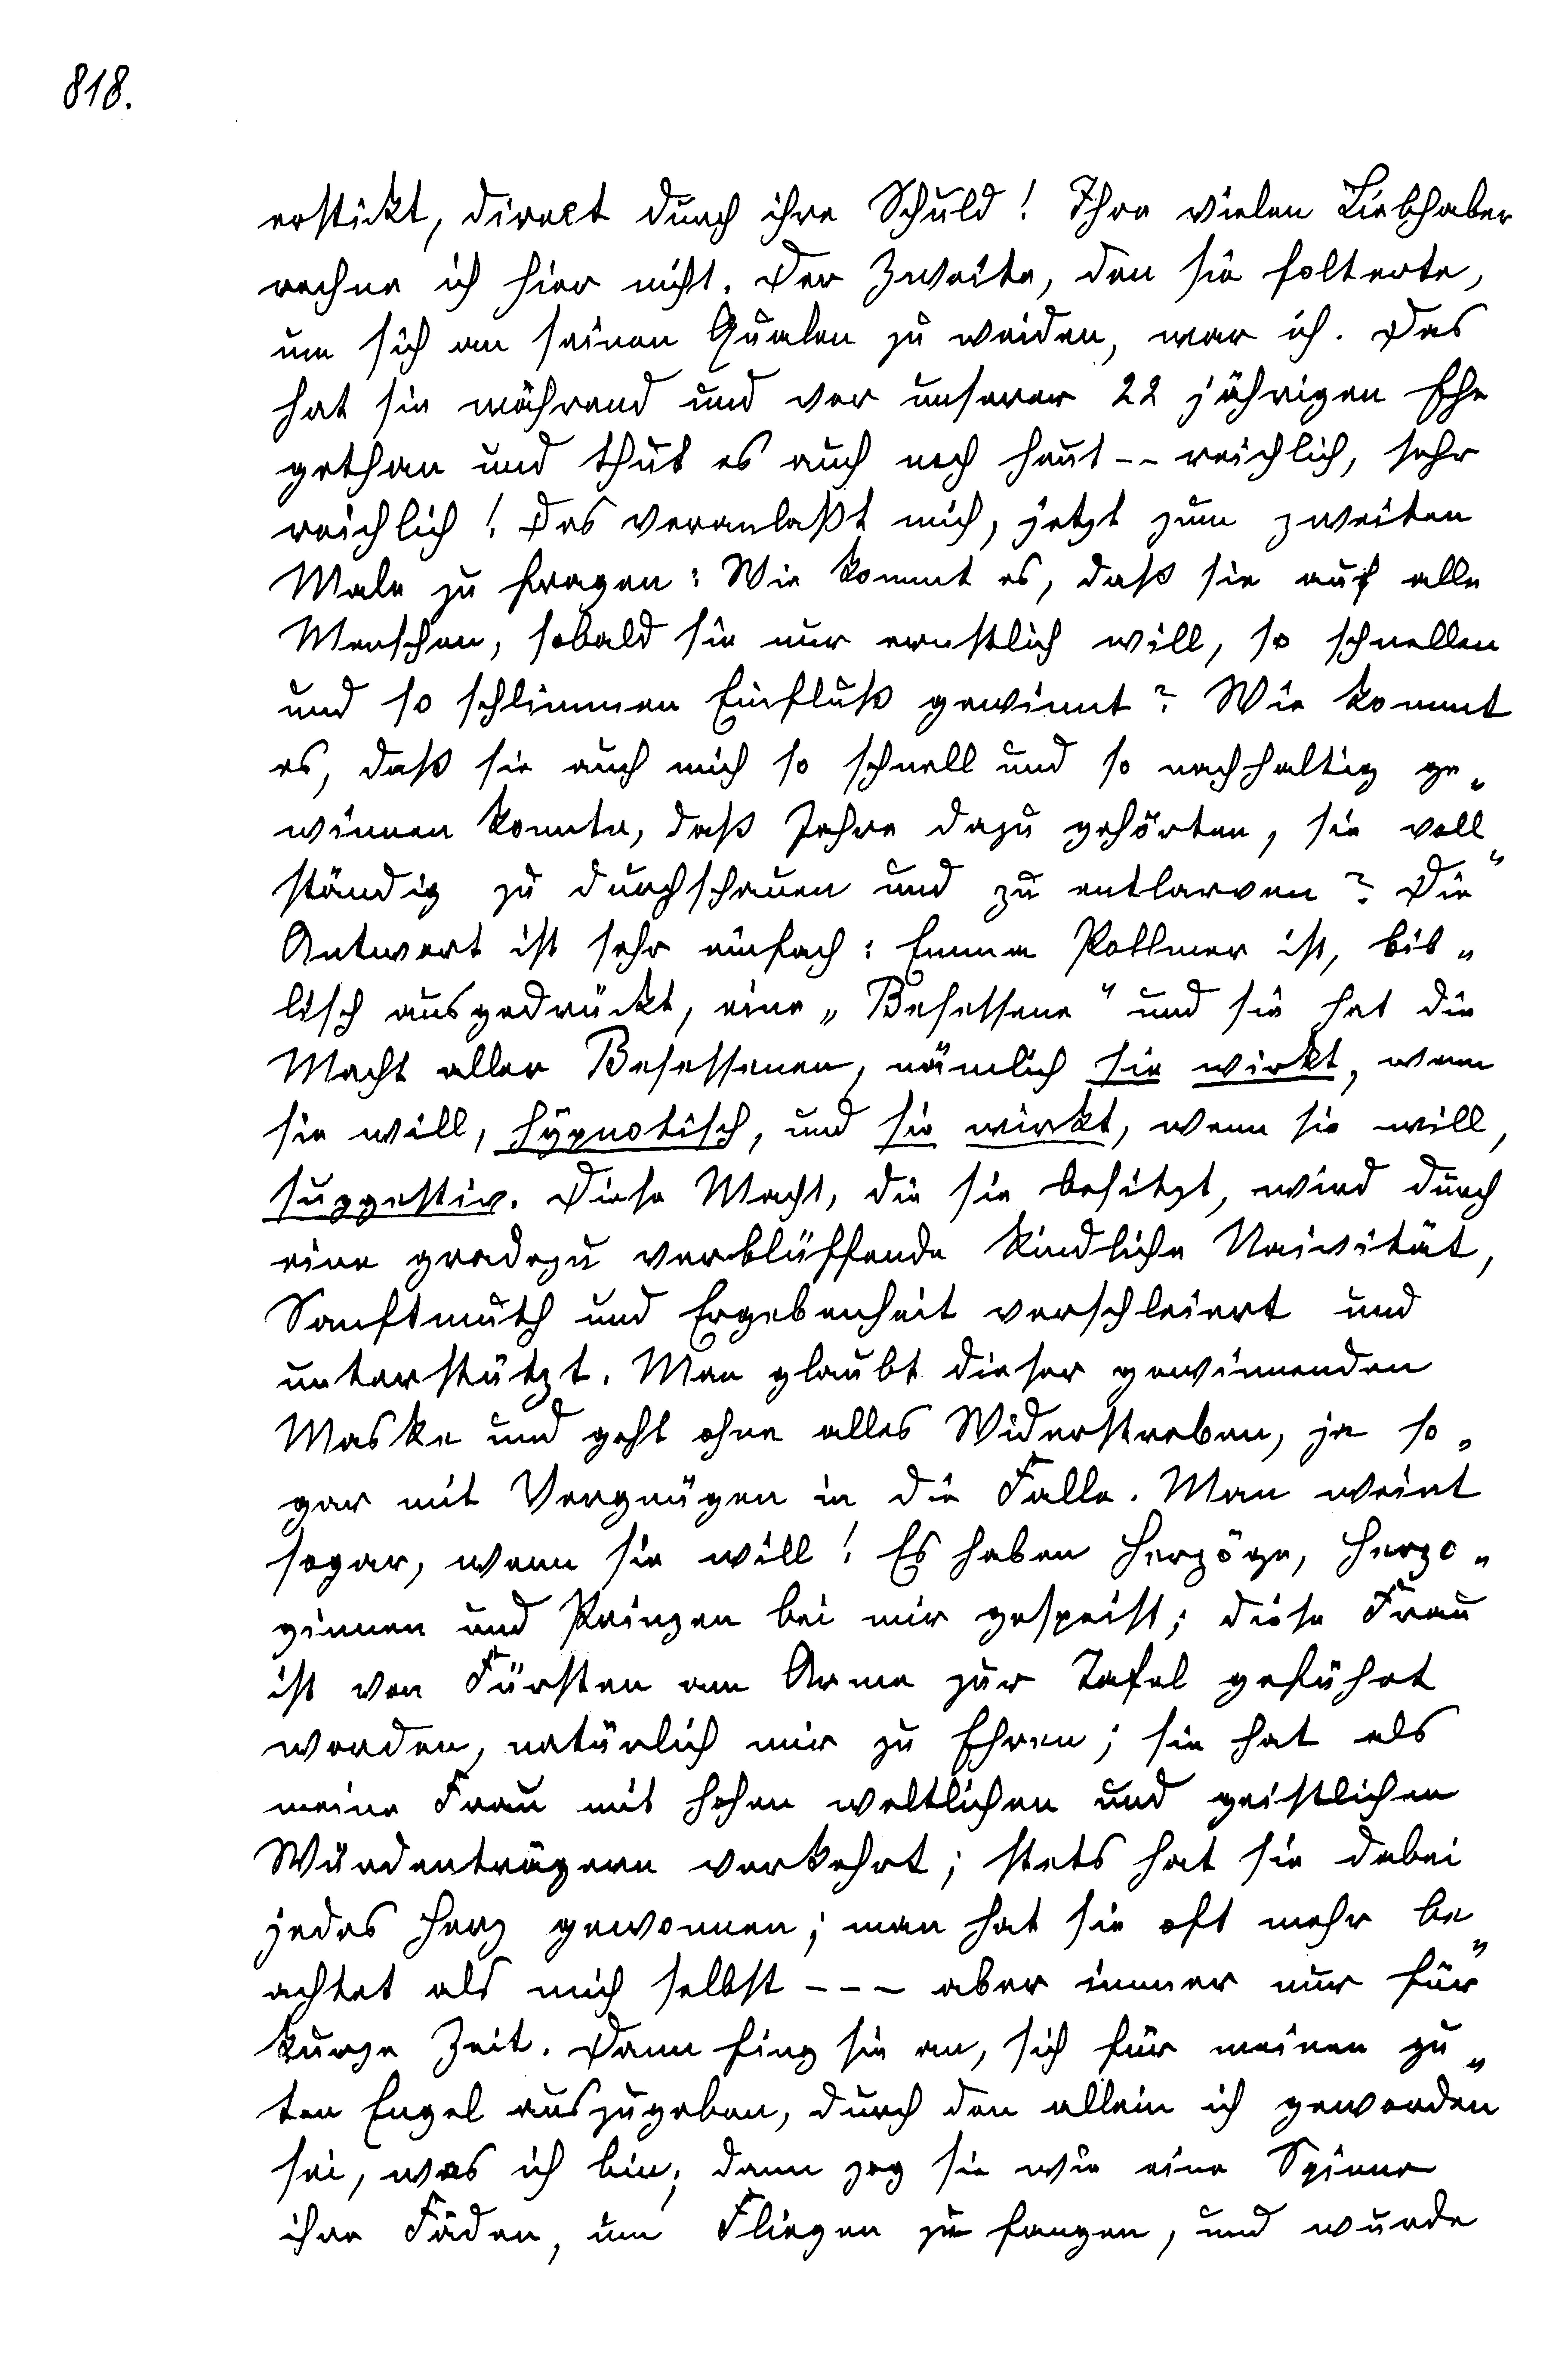 818.
erstickt, direct durch ihre Schuld! Ihre vielen Liebhaber
rechne ich hier nicht. Der Zweite, den sie folterte,
um sich an seinen Qualen zu weiden, war ich. Das
hat sie während und vor unserer 22 jährigen Ehe
gethan und thut es auch noch heut -- reichlich, sehr
reichlich! Das veranlaßt mich, jetzt zum zweiten
Male zu fragen: Wie kommt es, daß sie auf alle
Menschen, sobald sie nur ernstlich will, so schnellen
und so schlimmen Einfluß gewinnt? Wie kommt
es, daß sie auch mich so schnell und so nachhaltig ge„
winnen konnte, daß Jahre dazu gehörten, sie voll„
ständig zu durchschauen und zu entlarven? Die
Antwort ist sehr einfach: Emma Pollmer ist, bib„
lisch ausgedrückt, eine „Besessene“ und sie hat die
Macht aller Besessenen, nämlich sie wirkt, wenn
sie will, hypnotisch, und sie wirkt, wenn sie will,
suggestiv. Diese Macht, die sie besitzt, wird durch
eine gradezu verblüffende kindliche Naivität,
Sanftmuth und Ergebenheit verschleiert und
unterstützt. Man glaubt dieser gewinnenden
Maske und geht ohne alles Widerstreben, ja so„
gar mit Vergnügen in die Falle. Man weint
sogar, wenn sie will! Es haben Herzöge, Herzo„
ginnen und Prinzen bei mir gespeist; diese Frau
ist von Fürsten am Arme zur Tafel geführt
worden, natürlich mir zu Ehren; sie hat als
meine Frau mit hohen weltlichen und geistlichen
Würdenträgern verkehrt; stets hat sie dabei
jedes Herz gewonnen; man hat sie oft mehr be„
achtet als mich selbst --- aber immer nur für
kurze Zeit. Dann fing sie an, sich für meinen gu„
ten Engel auszugeben, durch den allein ich geworden
sei, was ich bin; dann zog sie wie eine Spinne
ihre Fäden, um Fliegen zu fangen, und wurde